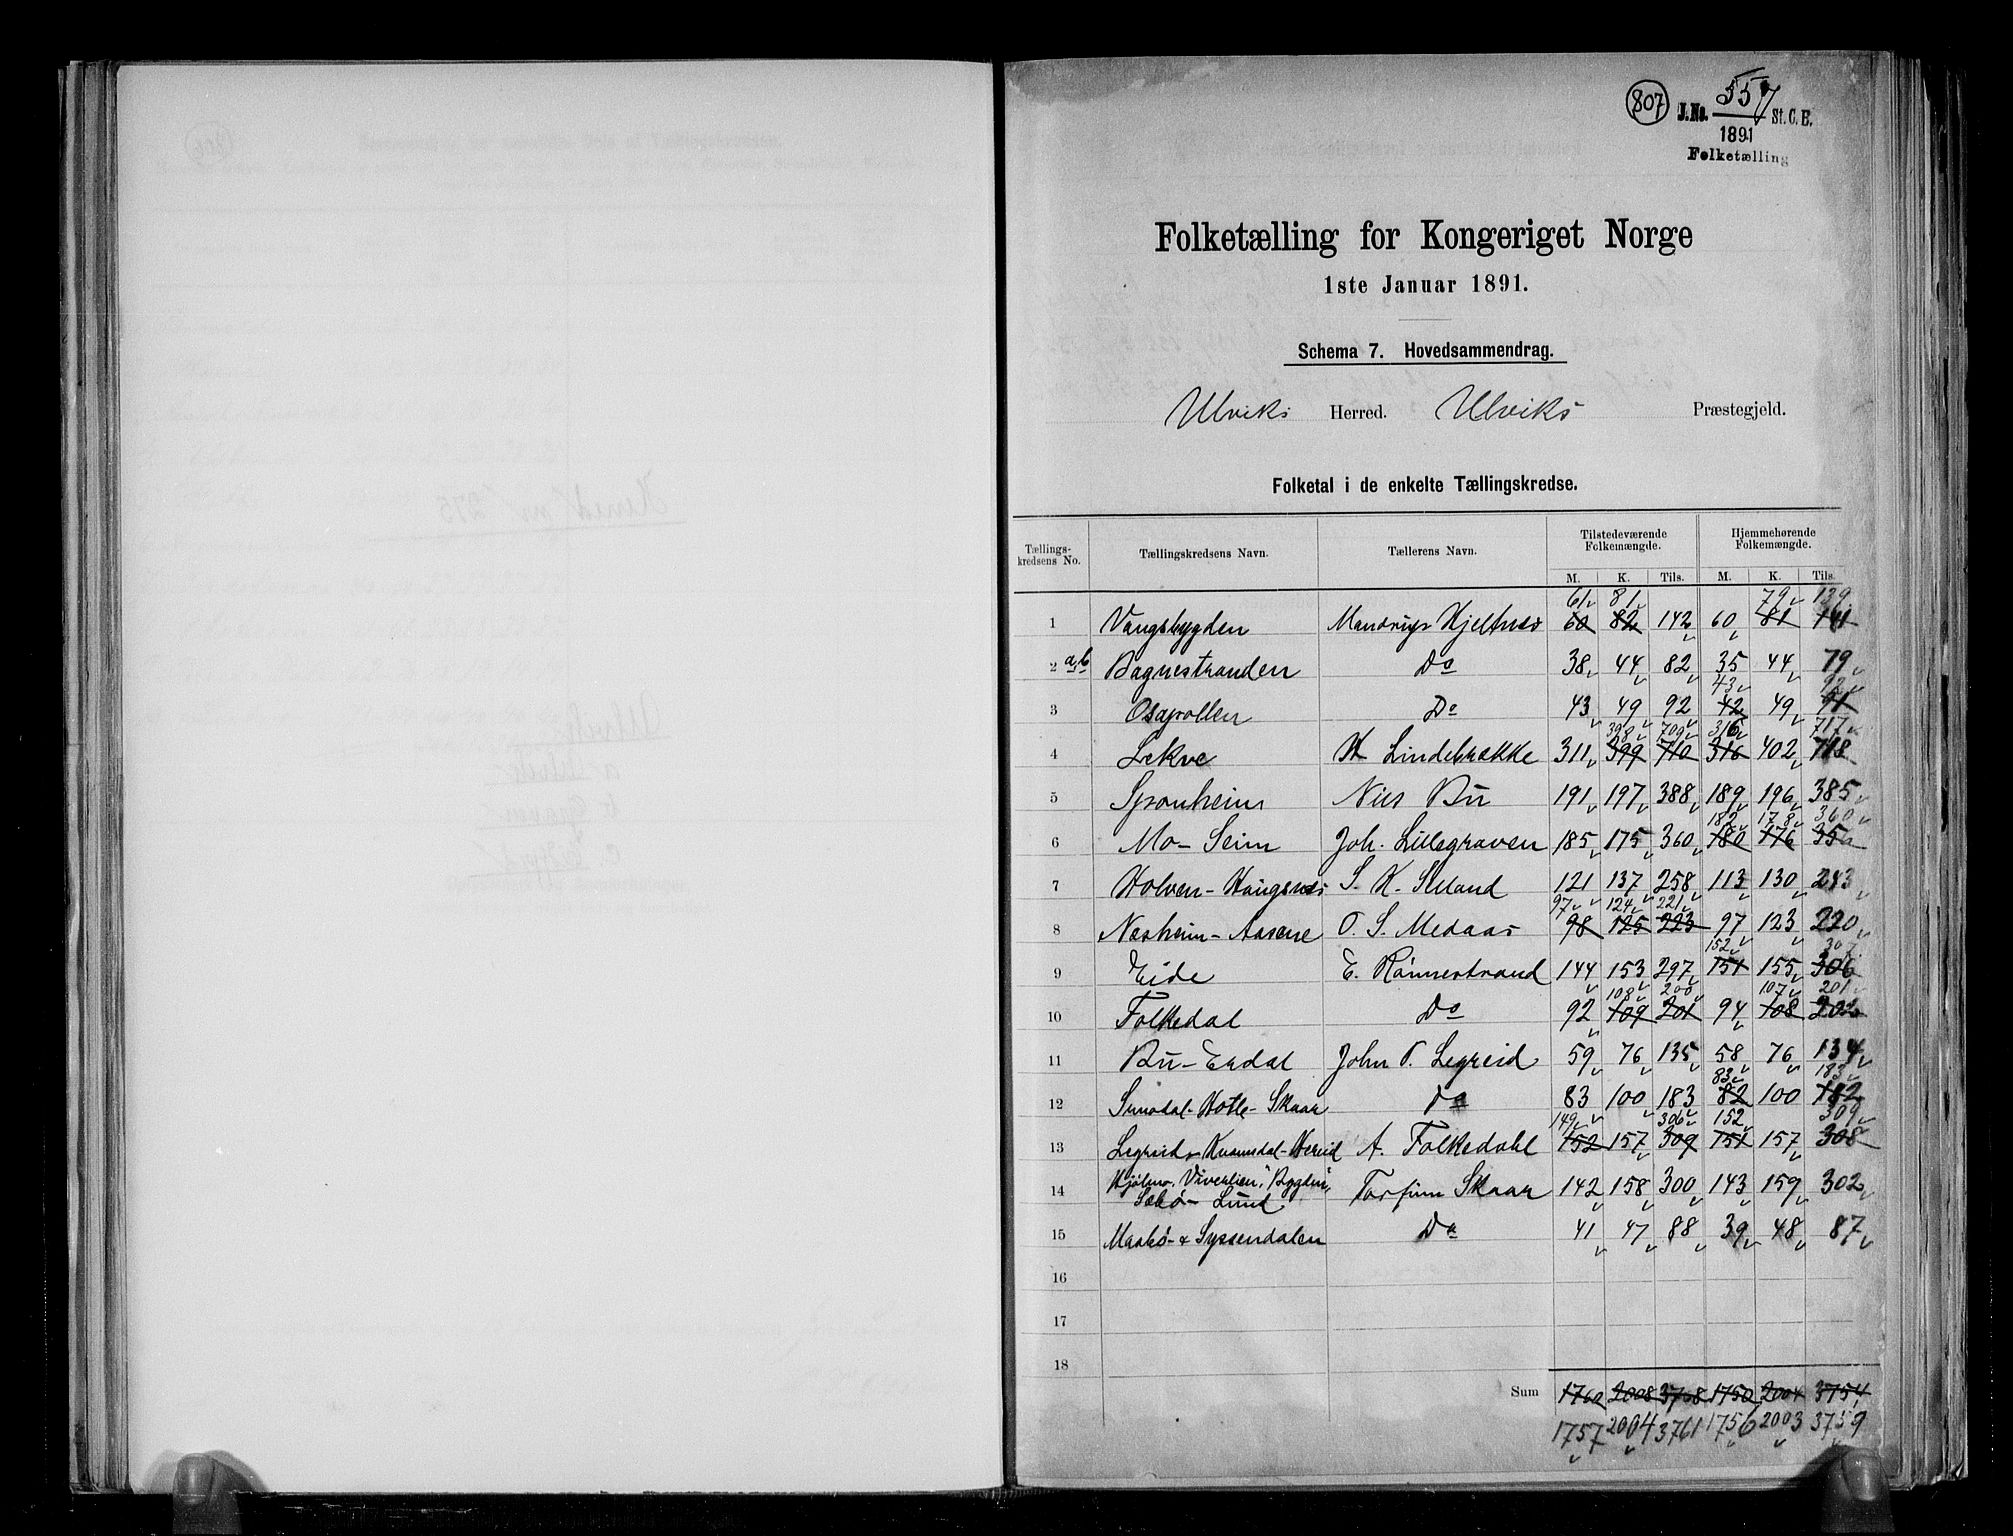 807 J.No. 557 St. C. B.
1891
Folketælling
Folketælling for Kongeriget Norge
1ste Januar 1891.
Schema 7. Hovedsammendrag.
Ulviks Herred. Ulviks Præstegjeld.
Folketal i de enkelte Tællingskredse.
Tællings-kredsens No. Tællingskredsens Navn. Tællerens Navn. Tilstedeværende Folkemængde. Hjemmehørende Folkemængde.
M. K. Tils. M. K. Tils.
61 81 79 139
1 Vangsbygden Mandrup Hjeltnes 60 82 142 60 81 141
2 a,b Bagnestranden Do 38 44 82 35 44 79
43 92
3 Osapollen Do 43 49 92 42 49 91
398 709 315 717
4 Lekve H Lindebrække 311 399 710 316 402 718
5 Sponheim Nils Bu 191 197 388 189 196 385
182 178 360
6 Mo- Seim Joh. Lillegraven 185 175 360 180 176 356
7 Holven- Haugsnes S. K. Selland 121 137 258 113 130 243
97 124 221
8 Næsheim- Aasene O. S. Medaas 98 125 223 97 123 220
152 307
9 Eide E. Rønnestrand 144 153 297 151 155 306
108 200 107 201
10 Folkedal Do 92 109 201 94 108 202
11 Bu- Erdal John T. Legreid 59 76 135 58 76 134
83 183
12 Simodal- Hotle- Skaar Do 83 100 183 82 100 182
149 306 152 309
13 Legreid- Kvamsdal- Hereid A. Folkedahl 152 157 309 151 157 308
14 Hjølmo, Viverlien, "Bygden", Torfinn Skaar 142 158 300 143 159 302
Sæbø- Lund.
15 Maabø- & Syssendalen Do 41 47 88 39 48 87
16
17
18
Sum 1760 2008 3768 1750 2004 3754
1757 2004 3761 1756 2003 3759